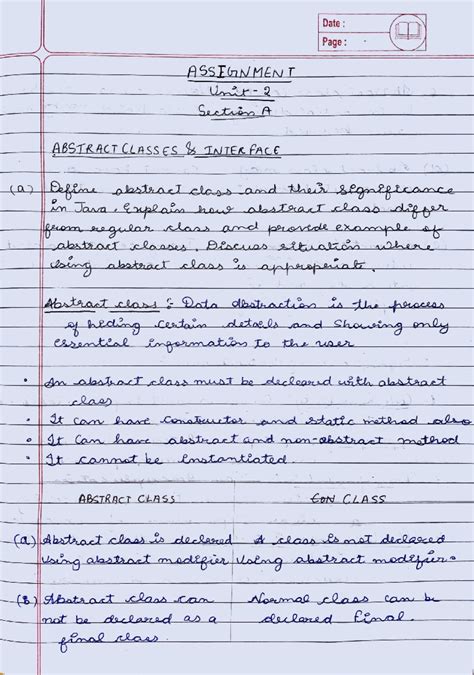 Date :
Page :
ASSIGNMENT
Unit - 2
Section A
ABSTRACT CLASSES & INTERFACE
(a) Define abstract class and their significance
in Java. Explain how abstract class differ
from regular class and provide example of
abstract classes. Discuss situation where
using abstract class is appropriate.
Abstract class : Data abstraction is the process
of hiding certain details and showing only
essential information to the user
• An abstract class must be declared with abstract
class
• It can have constructor and static method also
• It can have abstract and non-abstract method
• It cannot be instantiated.
ABSTRACT CLASS CON CLASS
(a) Abstract class is declared A class is not declared
using abstract modifier using abstract modifier.
(B) Abstract class can Normal class can be
not be declared as a declared final.
final class.